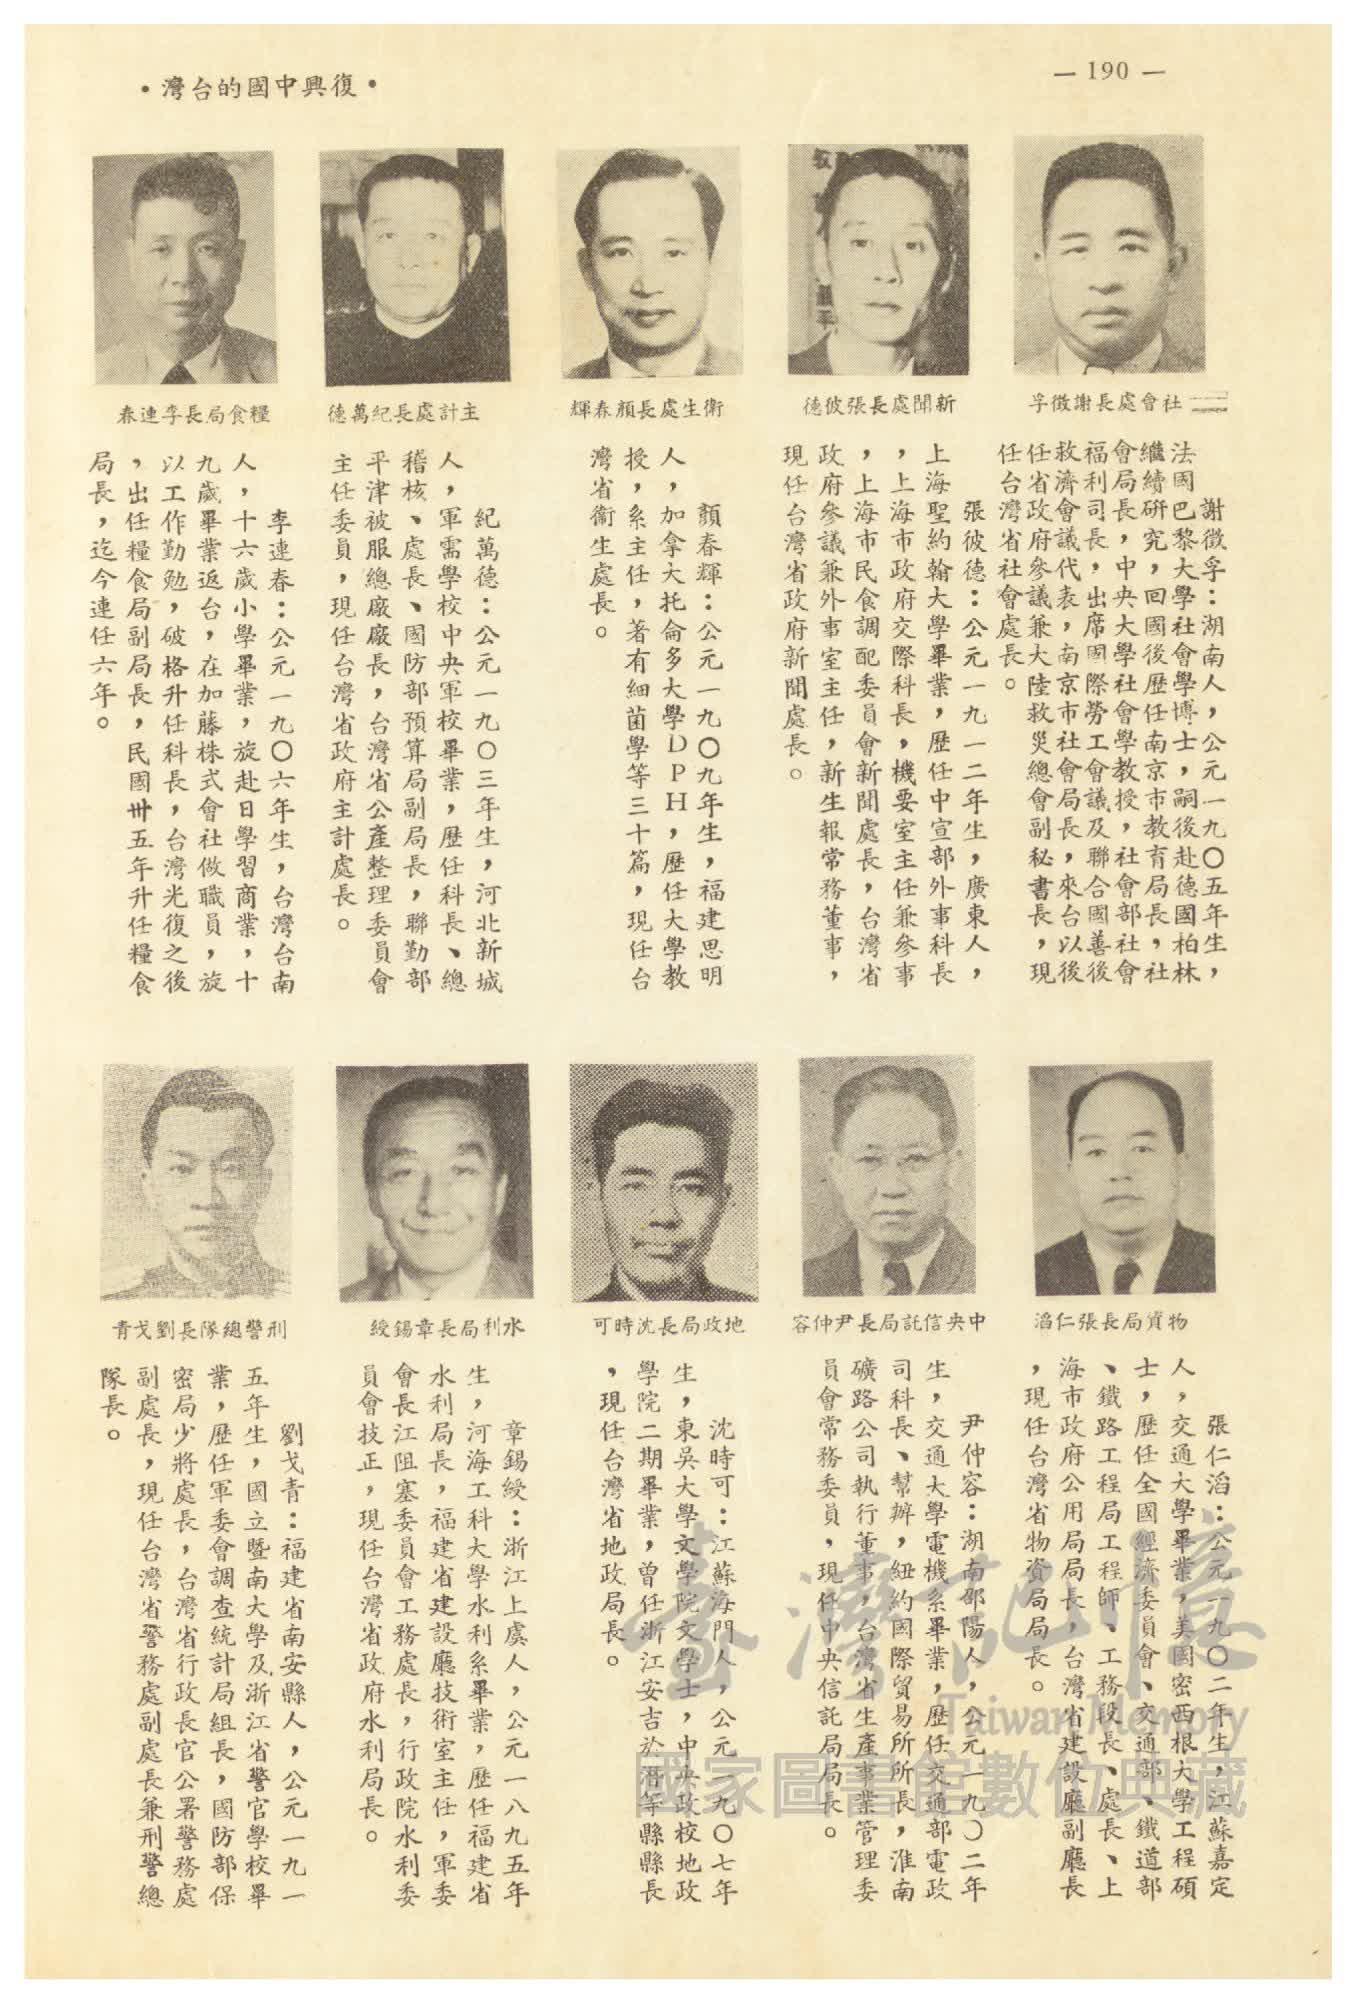 — 190 —
•復興中國的台灣•
社會處長謝徵孚
謝徵孚：湖南人，公元一九〇五年生，
法國巴黎大學社會學博士，嗣後赴德國柏林
繼續研究，回國後歷任南京市教育局長，社
會局長，中央大學社會學教授，社會部社會
福利司長，出席國際勞工會議及聯合國善後
救濟會議代表，南京市社會局長，來台以後
任省政府參議兼大陸救災總會副秘書長，現
任台灣省社會處長。
新聞處長張彼德
張彼德：公元一九一二年生，廣東人，
上海聖約翰大學畢業，歷任中宣部外事科長
，上海市政府交際科長，機要室主任兼參事
，上海市民食調配委員會新聞處長，台灣省
政府參議兼外事室主任，新生報常務董事，
現任台灣省政府新聞處長。
衛生處長顏春輝
顏春輝：公元一九〇九年生，福建思明
人，加拿大托侖多大學ＤＰＨ，歷任大學教
授，系主任，著有細菌學等三十篇，現任台
灣省衞生處長。
主計處長紀萬德
紀萬德：公元一九〇三年生，河北新城
人，軍需學校中央軍校畢業，歷任科長、總
稽核、處長、國防部預算局副局長，聯勤部
平津被服總廠廠長，台灣省公產整理委員會
主任委員，現任台灣省政府主計處長。
糧食局長李連春
李連春：公元一九〇六年生，台灣台南
人，十六歲小學畢業，旋赴日學習商業，十
九歲畢業返台，在加藤株式會社做職員，旋
以工作勤勉，破格升任科長，台灣光復之後
，出任糧食局副局長，民國卅五年升任糧食
局長，迄今連任六年。
物資局長張仁滔
張仁滔：公元一九〇二年生，江蘇嘉定
人，交通大學畢業，美國密西根大學工程碩
士，歷任全國經濟委員會、交通部、鐵道部
、鐵路工程局工程師、工務段長、處長、上
海市政府公用局局長，台灣省建設廳副廳長
，現任台灣省物資局局長。
中央信託局長尹仲容
尹仲容：湖南邵陽人，公元一九〇二年
生，交通大學電機系畢業，歷任交通部電政
司科長、幫辦，紐約國際貿易所所長，淮南
礦路公司執行董事，台灣省生產事業管理委
員會常務委員，現任中央信託局局長。
地政局長沈時可
沈時可：江蘇海門人，公元一九〇七年
生，東吳大學文學院文學士，中央政校地政
學院二期畢業，曾任浙江安吉於潛等縣縣長
，現任台灣省地政局長。
水利局長章錫綬
章錫綬：浙江上虞人，公元一八九五年
生，河海工科大學水利系畢業，歷任福建省
水利局長，福建省建設廳技術室主任，軍委
會長江阻塞委員會工務處長，行政院水利委
員會技正，現任台灣省政府水利局長。
刑警總隊長劉戈青
劉戈青：福建省南安縣人，公元一九一
五年生，國立暨南大學及浙江省警官學校畢
業，歷任軍委會調查統計局組長，國防部保
密局少將處長，台灣省行政長官公署警務處
副處長，現任台灣省警務處副處長兼刑警總
隊長。
臺灣記憶
Taiwan Memory
國家圖書館數位典藏